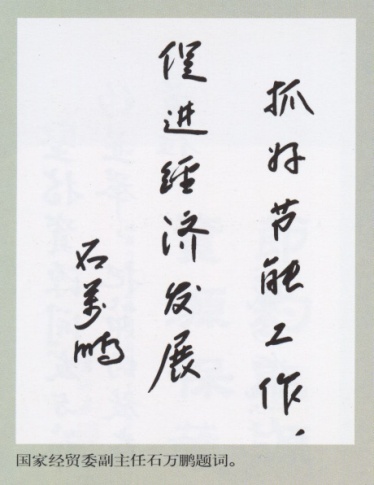 抓好节能工作.
促进经济发展
石万鹏
国家经贸委副主任石万鹏题词。